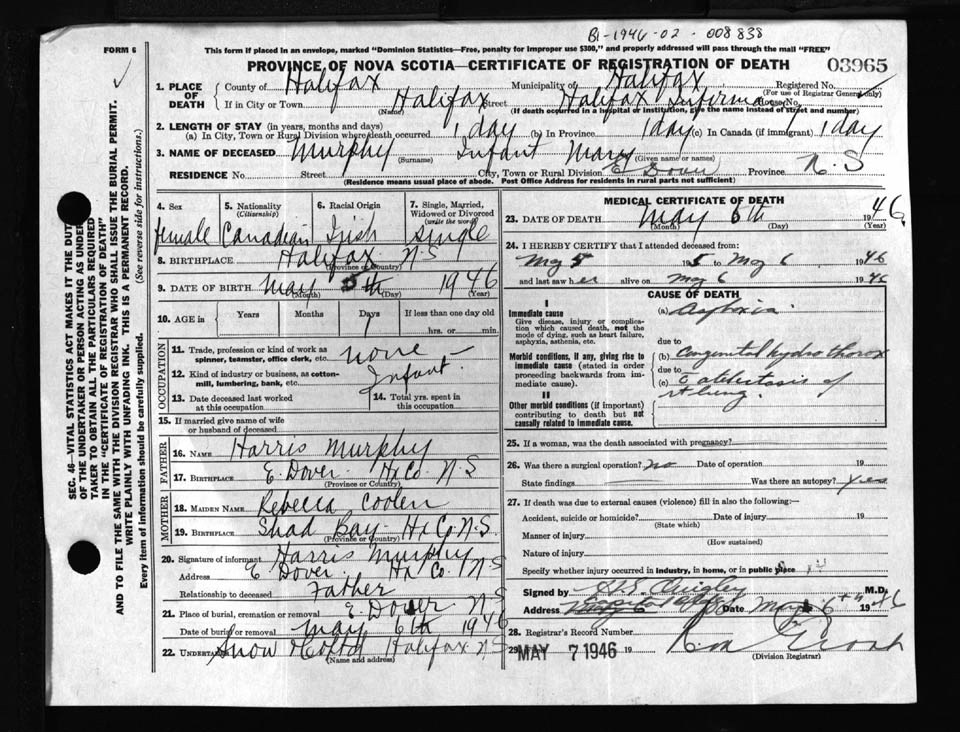 B1-1946-02-008838
FORM 6
This form if placed in an envelope, marked "Dominion Statistics—Free, penalty for improper use $300," and properly addressed will pass through the mail "FREE"
PROVINCE OF NOVA SCOTIA—CERTIFICATE OF REGISTRATION OF DEATH 03965
1. PLACE OF DEATH County of Halifax Municipality of Halifax Registered No.
(For use of Registrar General only)
If in City or Town Halifax Street Halifax Infirmary House No.
(Name) (If death occurred in a hospital or institution, give the name instead of street and number)
2. LENGTH OF STAY (in years, months and days)
(a) In City, Town or Rural Division where death occurred 1 day (b) In Province 1 day (c) In Canada (if immigrant) 1 day
3. NAME OF DECEASED Murphy Infant Mary
(Surname) (Given name or names)
RESIDENCE No. Street City, Town or Rural Division E Dover Province N.S
(Residence means usual place of abode. Post Office Address for residents in rural parts not sufficient)
4. Sex 5. Nationality (Citizenship) 6. Racial Origin 7. Single, Married, Widowed or Divorced (write the word)
female Canadian Irish single
8. BIRTHPLACE Halifax N.S
(Province or Country)
9. DATE OF BIRTH May 5th 1946
(Month) (Day) (Year)
10. AGE in Years Months Days If less than one day old
1 hrs. or min.
OCCUPATION
11. Trade, profession or kind of work as spinner, teamster, office clerk, etc. none —
12. Kind of industry or business, as cotton-mill, lumbering, bank, etc. Infant.
13. Date deceased last worked at this occupation 14. Total yrs. spent in this occupation
15. If married give name of wife or husband of deceased
FATHER
16. NAME Harris Murphy
17. BIRTHPLACE E. Dover. Hx Co. N.S
(Province or Country)
MOTHER
18. MAIDEN NAME Rebecca Coolen
19. BIRTHPLACE Shad Bay Hx Co N.S.
(Province or Country)
20. Signature of informant Harris Murphy
Address E Dover. Hx Co. N.S
Relationship to deceased Father
21. Place of burial, cremation or removal E. Dover N.S
Date of burial or removal May 6th 1946
22. UNDERTAKER Snow Halifax N.S
(Name and address)
MEDICAL CERTIFICATE OF DEATH
23. DATE OF DEATH May 6th 1946
(Month) (Day) (Year)
24. I HEREBY CERTIFY that I attended deceased from:
May 5 to May 6 1946
and last saw her alive on May 6 1946
CAUSE OF DEATH
I
Immediate cause (a) Asphyxia
Give disease, injury or complication which caused death, not the mode of dying, such as heart failure, asphyxia, asthenia, etc.
due to
Morbid conditions, if any, giving rise to immediate cause (stated in order proceeding backwards from immediate cause). (b) Congenital hydrothorax
due to
(c) atelectasis of
lung.
II
Other morbid conditions (if important) contributing to death but not causally related to immediate cause.
25. If a woman, was the death associated with pregnancy?
26. Was there a surgical operation? no Date of operation 19
State findings Was there an autopsy? yes
27. If death was due to external causes (violence) fill in also the following:—
Accident, suicide or homicide? Date of injury 19
(State which)
Manner of injury
(How sustained)
Nature of injury
Specify whether injury occurred in industry, in home, or in public place
Signed by M.D.
Address Date May 6th 1946
28. Registrar's Record Number
29. MAY 7 1946 19
(Division Registrar)
SEC. 46—VITAL STATISTICS ACT MAKES IT THE DUTY
OF THE UNDERTAKER OR PERSON ACTING AS UNDER-
TAKER TO OBTAIN ALL THE PARTICULARS REQUIRED
IN THE "CERTIFICATE OF REGISTRATION OF DEATH"
AND TO FILE THE SAME WITH THE DIVISION REGISTRAR WHO SHALL ISSUE THE BURIAL PERMIT.
WRITE PLAINLY WITH UNFADING INK. THIS IS A PERMANENT RECORD.
Every item of information should be carefully supplied. (See reverse side for instructions.)